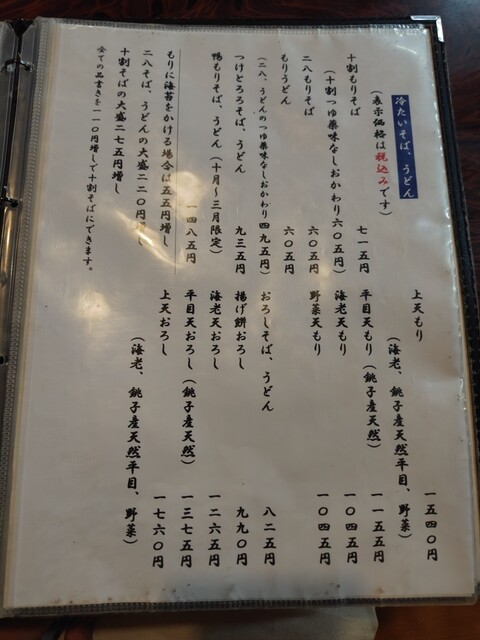 冷たいそば、うどん
（表示価格は税込みです）
十割もりそば　七一五円
（十割つゆ薬味なしおかわり六〇五円）
二八もりそば　六〇五円
もりうどん　六〇五円
（二八、うどんのつゆ薬味なしおかわり四九五円）
つけとろろそば、うどん　九三五円
鴨もりそば、うどん（十月～三月限定）
一四八五円
もりに海苔をかける場合は五五円増し
二八そば、うどんの大盛二二〇円増し
十割そばの大盛二七五円増し
全ての品書きを一一〇円増しで十割そばにできます。
上天もり　一五四〇円
（海老、銚子産天然平目、野菜）
平目天もり（銚子産天然）　一一五五円
海老天もり　一〇四五円
野菜天もり　一〇四五円
おろしそば、うどん　八二五円
揚げ餅おろし　九九〇円
海老天おろし　一二六五円
平目天おろし（銚子産天然）　一三七五円
上天おろし　一七六〇円
（海老、銚子産天然平目、野菜）